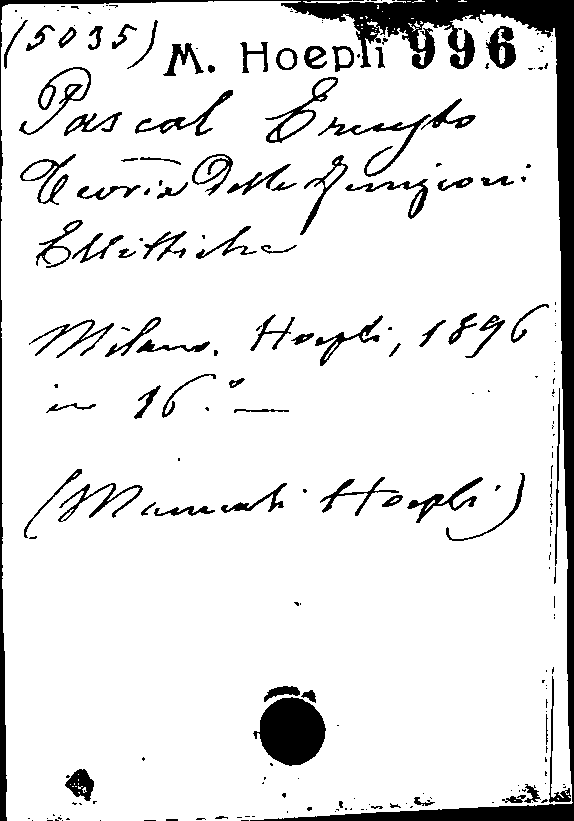 (5035) M. Hoepli 996
Pascal Ernesto
Teoria Delle Funzioni
Ellittiche
Milano. Hoepli, 1896
in 16.° —
(Manuali Hoepli)